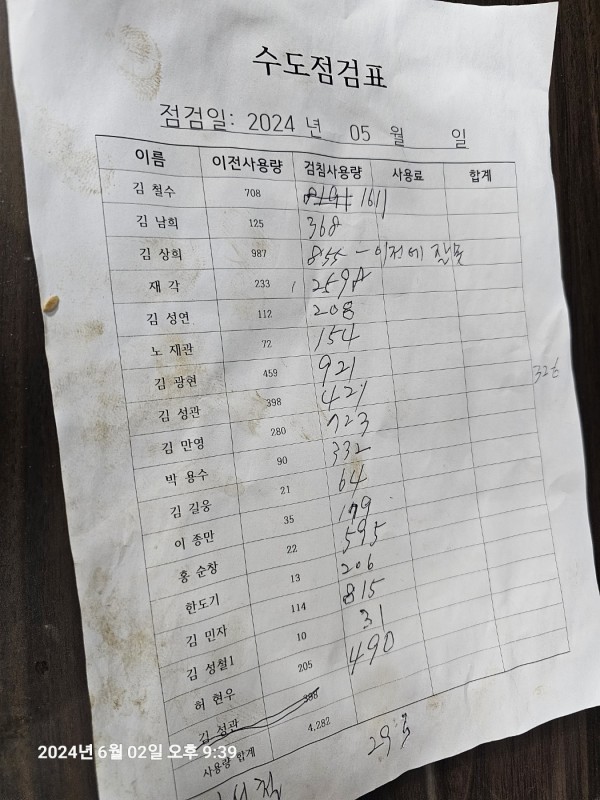 수도점검표
점검일: 2024 년 05 월 일
이름 이전사용량 검침사용량 사용료 합계
김 철수 708 1611
김 남희 125 368
김 상희 987 855 - 이전에 잘못
재 각 233
김 성연 112 208
노 재관 72 154
김 광현 459 921
김 성관 398 421
김 만영 280 723
박 용수 90 332
김 길웅 21 64
이 종만 35 179
홍 순창 22 595
한도기 13 206
김 민자 114 815
김 성철1 10 31
허 현우 205 490
김 성관 398
사용량 합계 4,282
2024년 6월 02일 오후 9:39